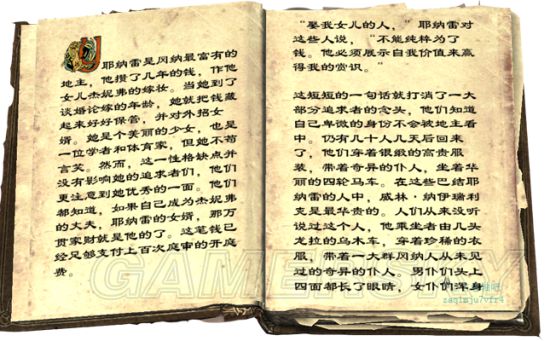 耶纳雷是冈纳最富有的
地主，他攒了几年的钱，作他
女儿杰妮弗的嫁妆。当她到了
谈婚论嫁的年龄，她就把钱藏
起来好好保管，并对外招女
婿。她是个美丽的少女，也是
一位学者和体育家，但她不苟
言笑。然而，这一性格缺点并
没有影响她的追求者们，他们
更注意到她优秀的一面。他们
都知道，如果自己成为杰妮弗
的大夫，耶纳雷的女婿，那万
贯家财就是他的了。这笔钱已
经足够支付上百次庭审的开庭
费。
“娶我女儿的人，”耶纳雷对
这些人说，“不能纯粹为了
钱。他必须展示自我价值来赢
得我的赏识。”
这短短的一句话就打消了一大
部分追求者的念头，他们知道
自己卑微的身份不会被地主看
中。仍有几十人几天后回来
了，他们穿着银缎的高贵服
装，带着奇异的仆人，坐着华
丽的四轮马车。在这些巴结耶
纳雷的人中，威林·纳伊瑞利
克是最华贵的。人们从来没听
说过这个人，他乘坐者由几头
龙拉的乌木车，穿着珍稀的衣
服，带着一大群冈纳人从来见
过的奇异的仆人，男仆们头上
四面都长了眼睛，女仆们浑身
GAMERSKY
zaq1mju7vfr4